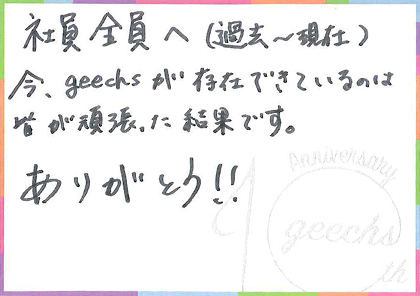 社員全員へ(過去~現在)
今、geechsが存在できているのは
皆が頑張った結果です。
ありがとう!!
Anniversary
10 geechs
th